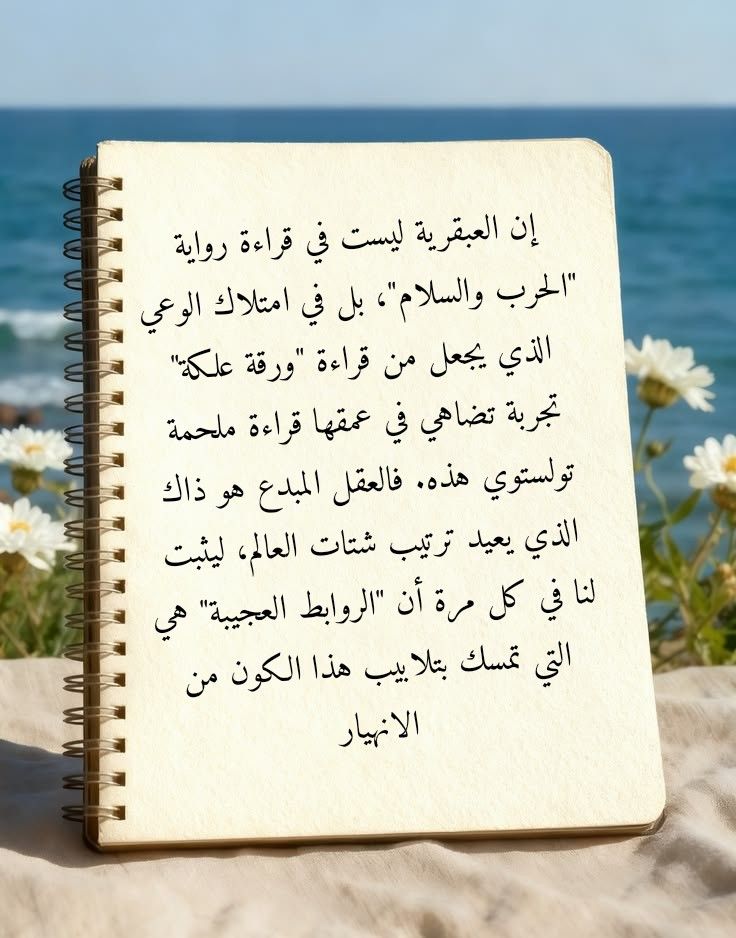 إن العبقرية ليست في قراءة رواية
"الحرب والسلام"، بل في امتلاك الوعي
الذي يجعل من قراءة "ورقة علكة"
تجربة تضاهي في عمقها قراءة ملحمة
تولستوي هذه. فالعقل المبدع هو ذاك
الذي يعيد ترتيب شتات العالم، ليثبت
لنا في كل مرة أن "الروابط العجيبة" هي
التي تمسك بتلابيب هذا الكون من
الانهيار